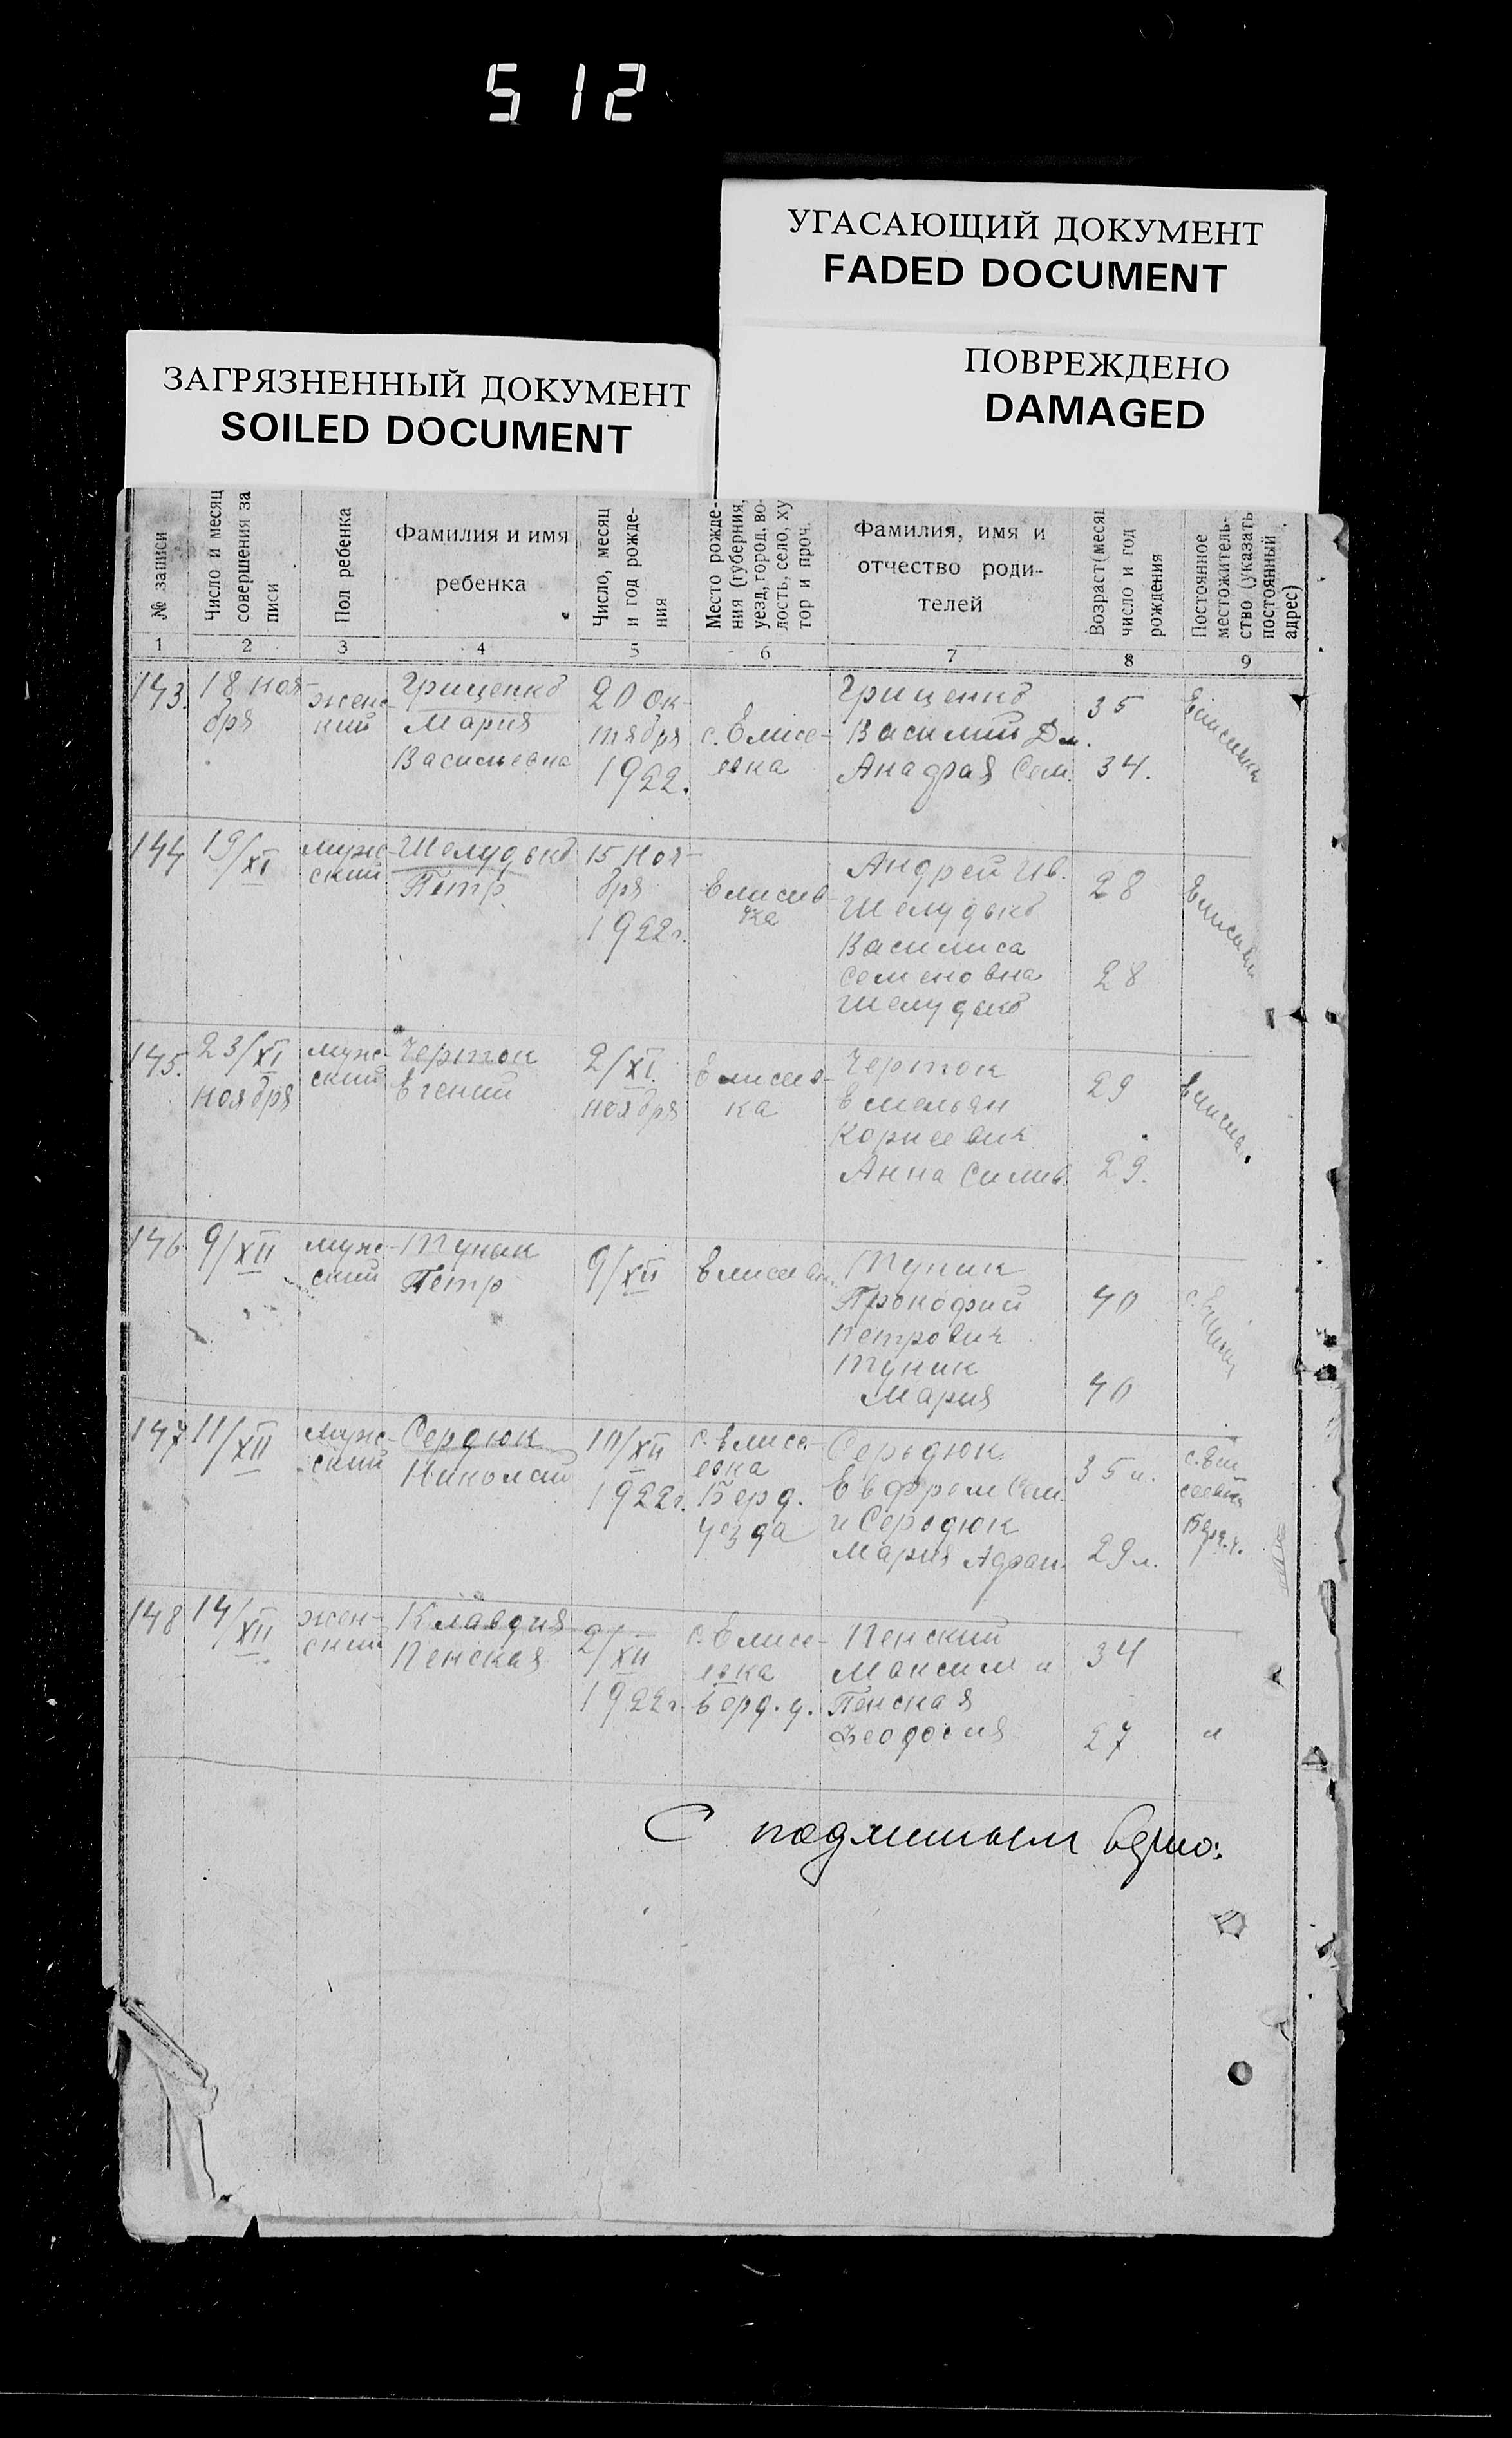 512
УГАСАЮЩИЙ ДОКУМЕНТ
FADED DOCUMENT
ПОВРЕЖДЕНО
DAMAGED
ЗАГРЯЗНЕННЫЙ ДОКУМЕНТ
SOILED DOCUMENT
№ записи
Число и месяц
совершения за
писи
Пол ребенка
Фамилия и имя
ребенка
Число, месяц
и год рожде-
ния
Место рожде-
ния (губерния,
уезд, город, во-
лость, село, ху
тор и проч.
Фамилия, имя и
отчество роди-
телей
Возраст (меся
число и год
рождения
Постоянное
местожитель-
ство (указать
постоянный
адрес)
1 2 3 4 5 6 7 8 9
143.
18 ноя-
бря
женс-
кий
Гриценко
Мария
Васильевна
20 ок-
тября
1922.
с. Елисе-
евка
Гриценко
Василий Дм.
Сем.
35
34.
144
19/XI
муж-
ский
Шелудько
Петр
15 ноя-
бря
1922 г.
Елисев
ка
Андрей Ив.
Шелудько
Василиса
Семеновна
Шелудько
28
28
145.
23/XI
ноября
муж-
ский
Черток
Евгений
2/XI.
ноября
Елисев-
ка
Черток
Емельян
Корнеевич
Анна Силив.
29
29.
146
9/XII
муж-
ский
Туник
Петр
9/XII
Туник
Прокофий
Петрович
Туник
Мария
40
40
147
11/XII
муж-
ский
Сердюк
Николай
10/XII
1922 г.
с. Елисе-
евка
Берд.
уезда
Сердюк
Евфрем Сем.
и Сердюк
Мария
35 л.
29 л.
148
14/XII
жен-
ский
Клавдия
Пенская
2/XII
1922 г.
с. Елисе-
евка
Берд. у.
Пенский
Максим и
Пенская
Феодосия
34
27
"
С подлинным верно: